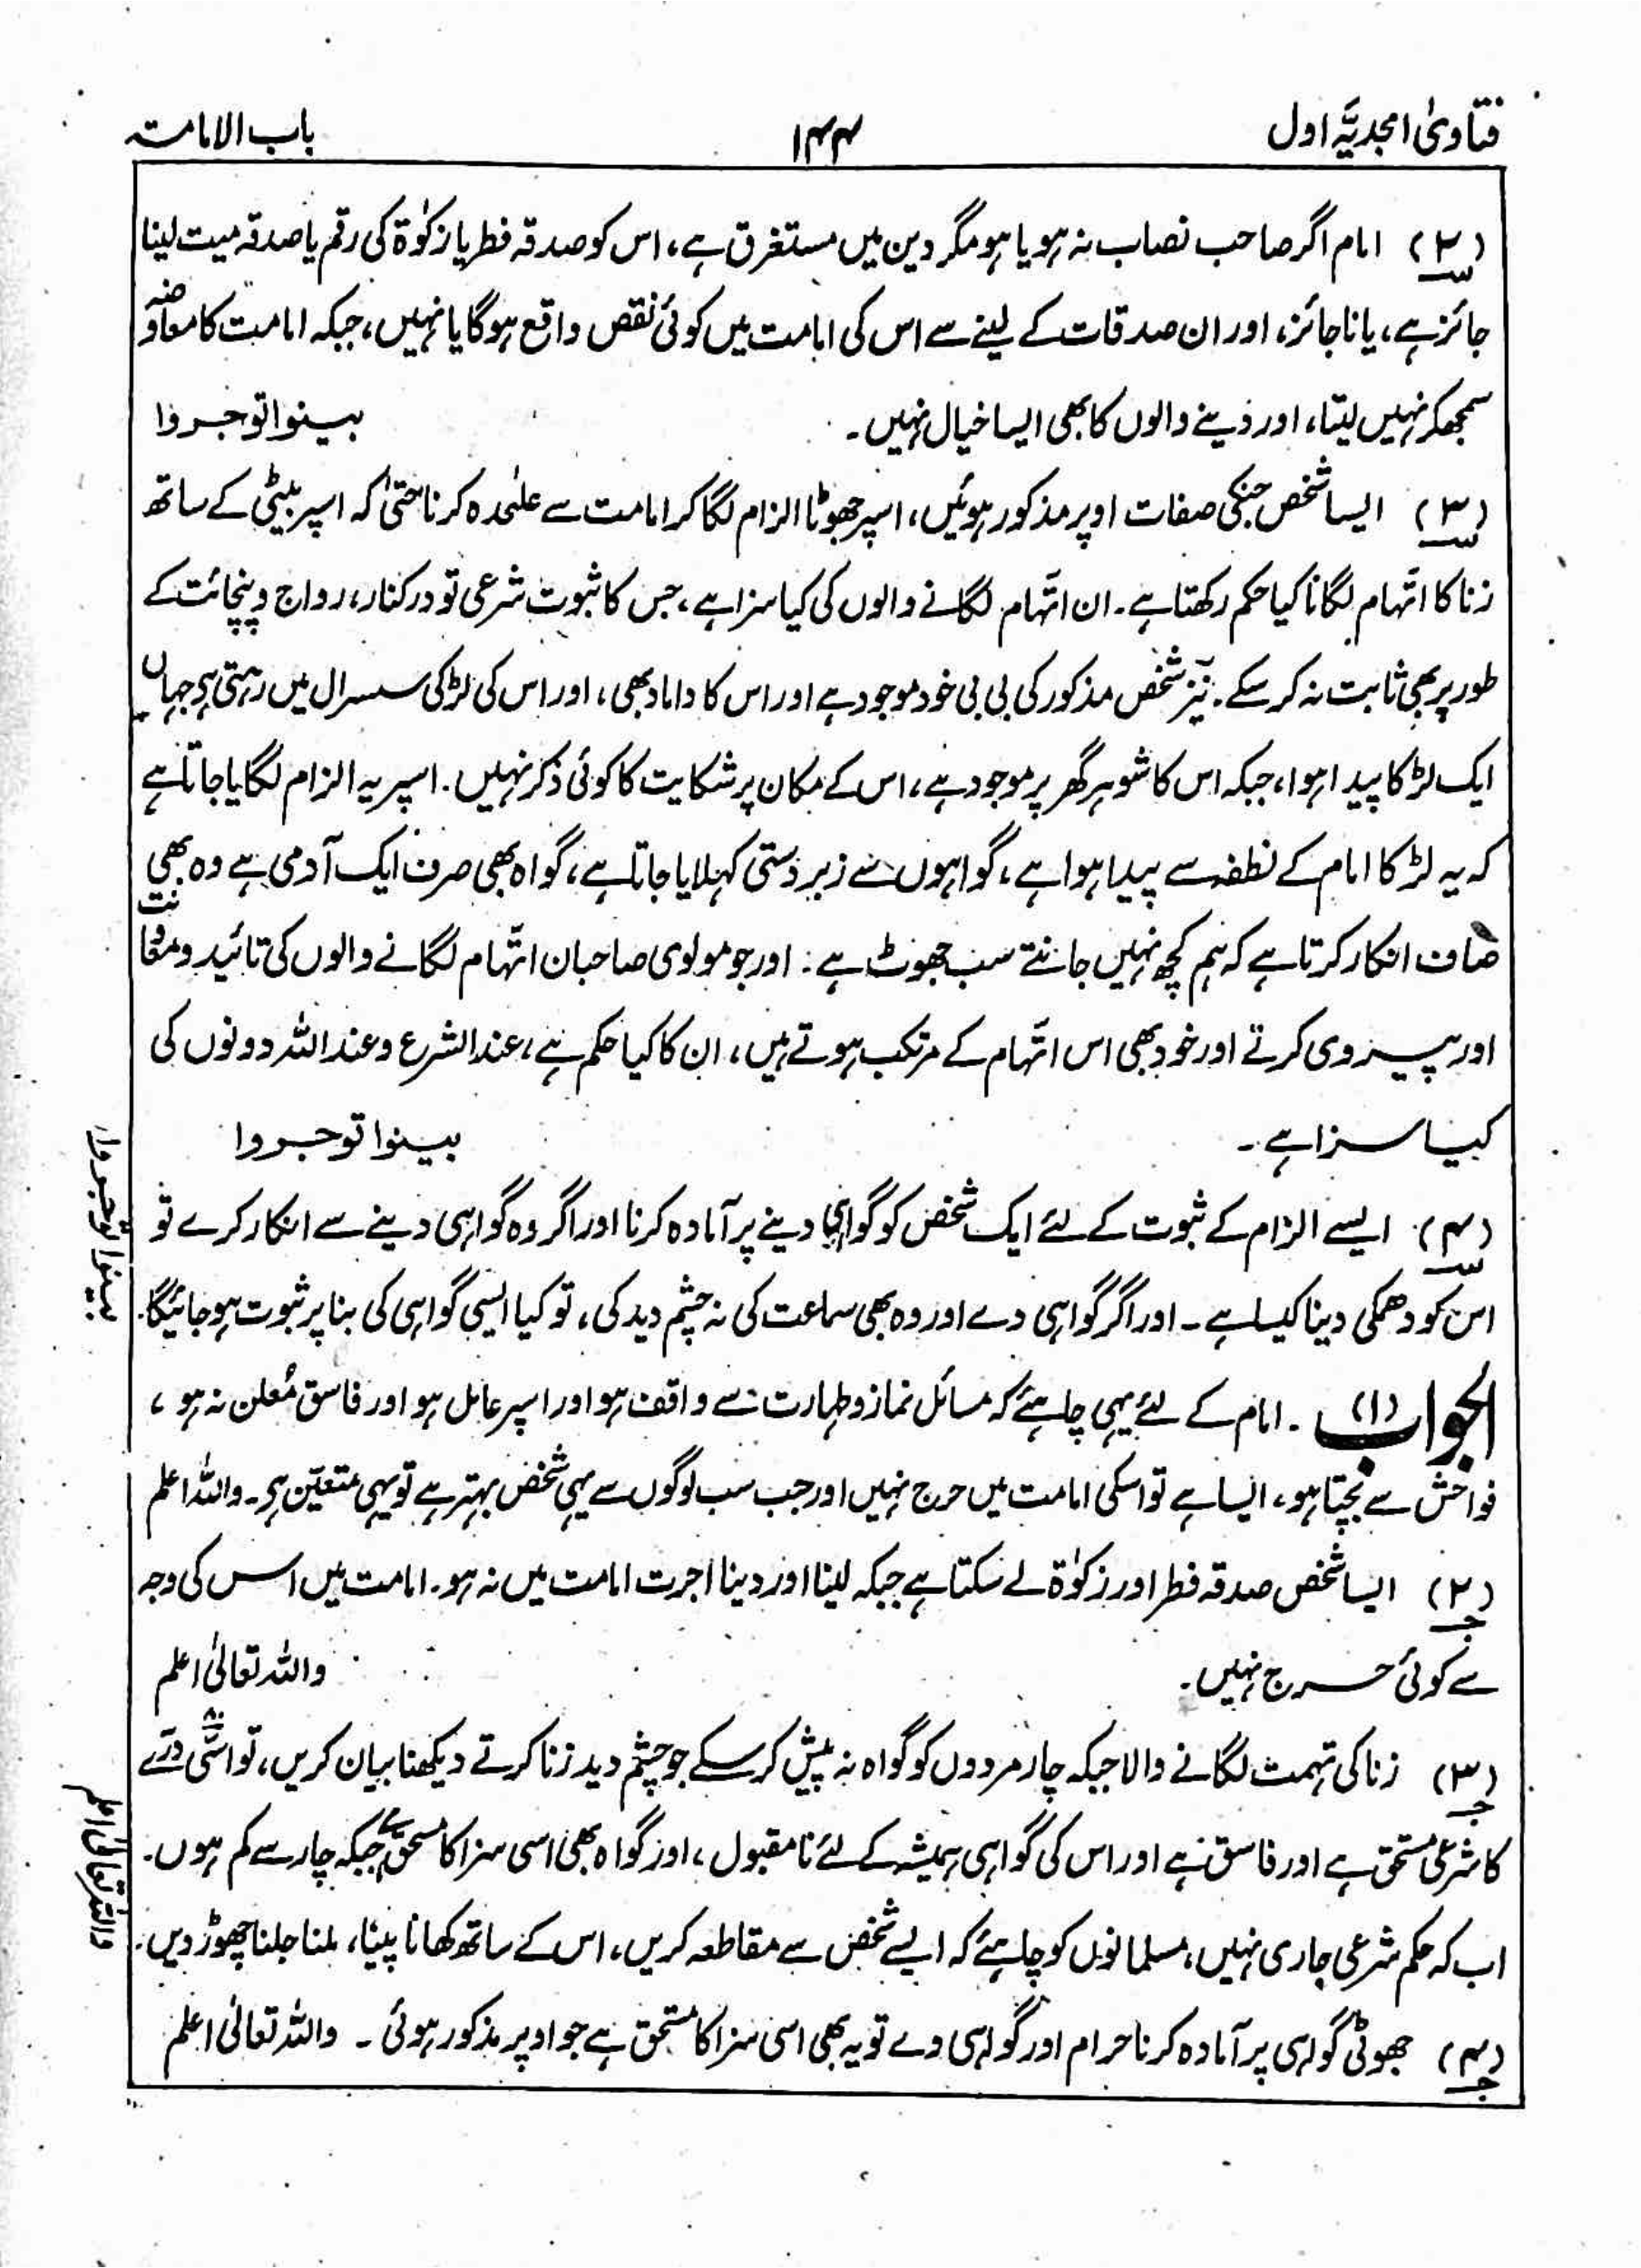 فتاویٰ امجدیہ اول
۱۴۴
باب الامامتہ
(۲) امام اگر صاحب نصاب نہ ہو یا ہو مگر دین میں مستغرق ہے، اس کو صدقہ فطر یا زکوٰۃ کی رقم یا صدقہ میت لینا
س
جائز ہے، یا ناجائز، اور ان صدقات کے لینے سے اس کی امامت میں کوئی نقص واقع ہوگا یا نہیں، جبکہ امامت کا معاوضہ
سمجھکر نہیں لیتا، اور دینے والوں کا بھی ایسا خیال نہیں۔ بینوا توجروا
(۳) ایسا شخص جنکی صفات اوپر مذکور ہوئیں، اسپر جھوٹا الزام لگا کر امامت سے علیٰحدہ کرنا حتیٰ کہ اسپر بیٹی کے ساتھ
س
زنا کا اتّہام لگانا کیا حکم رکھتا ہے۔ ان اتّہام لگانے والوں کی کیا سزا ہے، جس کا ثبوت شرعی تو درکنار، رواج و پنچائت کے
طور پر بھی ثابت نہ کر سکے۔ نیز شخص مذکور کی بی بی خود موجود ہے اور اس کا داماد بھی، اور اس کی لڑکی سسرال میں رہتی ہے جہاں
ایک لڑکا پیدا ہوا، جبکہ اس کا شوہر گھر پر موجود ہے، اس کے مکان پر شکایت کا کوئی ذکر نہیں۔ اسپر یہ الزام لگایا جاتا ہے
کہ یہ لڑکا امام کے نطفہ سے پیدا ہوا ہے، گواہوں سے زبردستی کہلایا جاتا ہے، گواہ بھی صرف ایک آدمی ہے وہ بھی
صاف انکار کرتا ہے کہ ہم کچھ نہیں جانتے سب جھوٹ ہے۔ اور جو مولوی صاحبان اتّہام لگانے والوں کی تائید و موافقت
اور پیروی کرتے اور خود بھی اس اتّہام کے مرتکب ہوتے ہیں، ان کا کیا حکم ہے، عند الشرع و عند اللہ دونوں کی
کیا سزا ہے۔ بینوا توجروا
(۴) ایسے الزام کے ثبوت کے لئے ایک شخص کو گواہی دینے پر آمادہ کرنا اور اگر وہ گواہی دینے سے انکار کرے تو
س
اس کو دھمکی دینا کیسا ہے۔ اور اگر گواہی دے اور وہ بھی سماعت کی نہ چشم دید کی، تو کیا ایسی گواہی کی بنا پر ثبوت ہو جائیگا۔
بینوا توجروا
الجواب (۱)۔ امام کے لئے یہی چاہئے کہ مسائل نماز و طہارت سے واقف ہو اور اسپر عامل ہو اور فاسق مُعلن نہ ہو،
فواحش سے بچتا ہو، ایسا ہے تو اسکی امامت میں حرج نہیں اور جب سب لوگوں سے یہی شخص بہتر ہے تو یہی متعیّن ہے۔ واللہ اعلم
(۲) ایسا شخص صدقہ فطر اور زکوٰۃ لے سکتا ہے جبکہ لینا اور دینا اجرت امامت میں نہ ہو۔ امامت میں اس کی وجہ
ج
سے کوئی حرج نہیں۔ واللہ تعالیٰ اعلم
(۳) زنا کی تہمت لگانے والا جبکہ چار مردوں کو گواہ نہ پیش کر سکے جو چشم دید زنا کرتے دیکھنا بیان کریں، تو اسّی ۸۰ درّے
ج
کا شرعی مستحق ہے اور فاسق ہے اور اس کی گواہی ہمیشہ کے لئے نامقبول، اور گواہ بھی اسی سزا کا مستحق ہے جبکہ چار سے کم ہوں۔
اب کہ حکم شرعی جاری نہیں، مسلمانوں کو چاہئے کہ ایسے شخص سے مقاطعہ کریں، اس کے ساتھ کھانا پینا، ملنا جلنا چھوڑ دیں۔
واللہ تعالیٰ اعلم
(۴) جھوٹی گواہی پر آمادہ کرنا حرام اور گواہی دے تو یہ بھی اسی سزا کا مستحق ہے جو اوپر مذکور ہوئی۔ واللہ تعالیٰ اعلم
ج